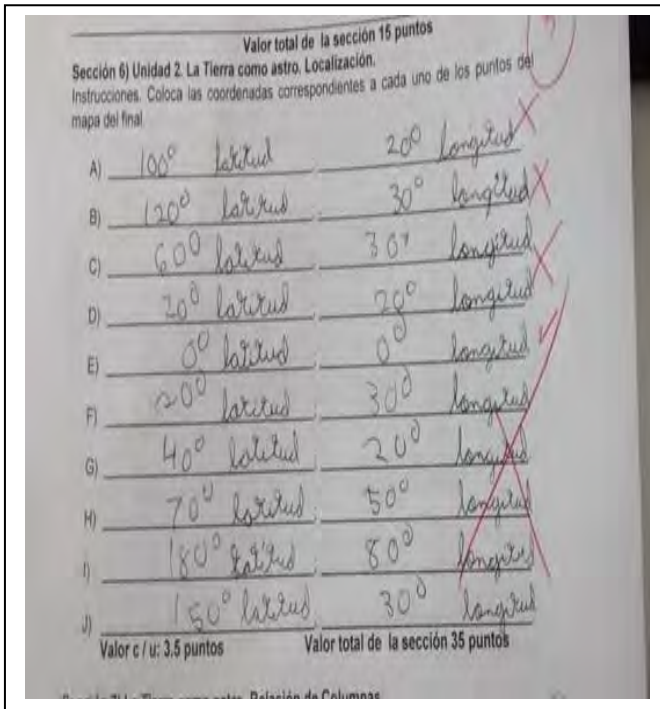 Valor total de la sección 15 puntos
Sección 6) Unidad 2. La Tierra como astro. Localización.
Instrucciones. Coloca las coordenadas correspondientes a cada uno de los puntos del
mapa del final
A) 100° latitud, 20° longitud
B) 120° latitud, 30° longitud
C) 60° latitud, 30° longitud
D) 20° latitud, 20° longitud
E) 0° latitud, 0° longitud
F) 20° latitud, 30° longitud
G) 40° latitud, 20° longitud
H) 70° latitud, 50° longitud
I) 180° latitud, 80° longitud
J) 150° latitud, 30° longitud
Valor c / u: 3.5 puntos Valor total de la sección 35 puntos
La Tierra como astro. Relación de Columnas